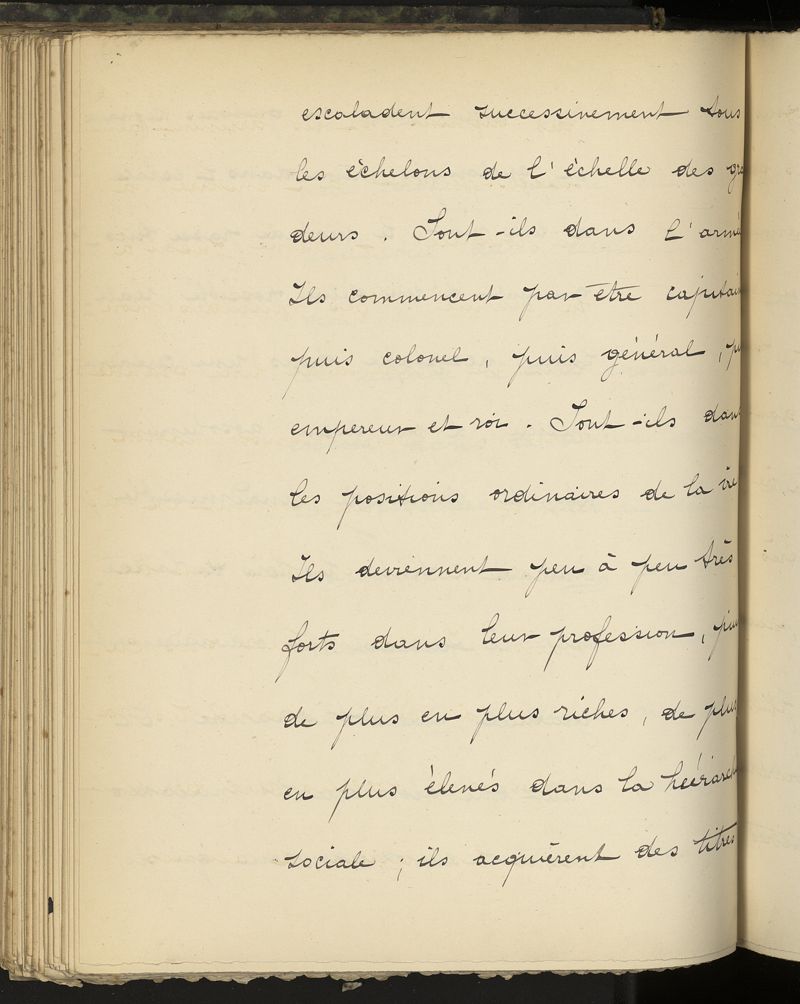 escaladent successivement tous
les échelons de l'échelle des gr
deurs. Sont-ils dans l'armé
Ils commencent par être capitai
puis colonel, puis général, pu
empereur et roi. Sont-ils dans
les positions ordinaires de la vie
Ils deviennent peu à peu très
forts dans leur profession, pui
de plus en plus riches, de plus
en plus élevés dans la hiérarch
sociale ; ils acquièrent des titres